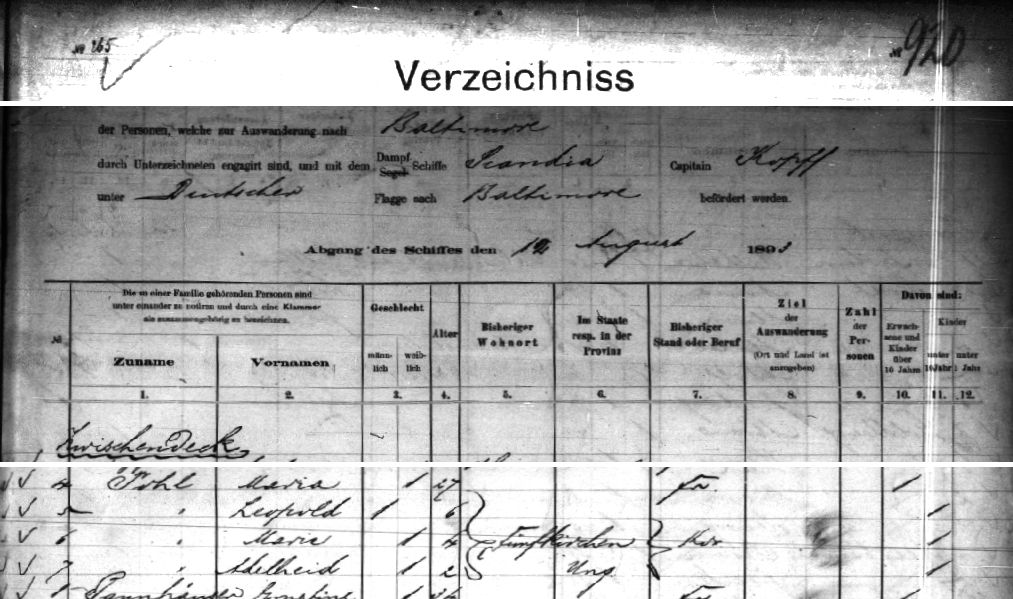 № 265 № 920
Verzeichniss
der Personen, welche zur Auswanderung nach Baltimore
durch Unterzeichneten engagirt sind, und mit dem Dampf-Segel-Schiffe Scandia Capitain Kopff
unter Deutscher Flagge nach Baltimore befördert werden.
Abgang des Schiffes den 12 August 1893
№ Die zu einer Familie gehörenden Personen sind unter einander zu notiren und durch eine Klammer als zusammengehörig zu bezeichnen. Geschlecht Alter Bisheriger Wohnort Im Staate resp. in der Provinz Bisheriger Stand oder Beruf Ziel der Auswanderung (Ort und Land ist anzugeben) Zahl der Personen Davon sind:
Zuname Vornamen männlich weiblich Erwachsene und Kinder über 10 Jahre Kinder unter 10 Jahr unter 1 Jahr
1. 2. 3. 4. 5. 6. 7. 8. 9. 10. 11. 12.
Zwischendeck
4 Pohl Maria 1 27 Fr. 1
5 " Leopold 1 6 1
6 " Marie 1 4 Fünfkirchen Kdr 1
7 " Adelheid 1 2 Ung 1
Ernestine